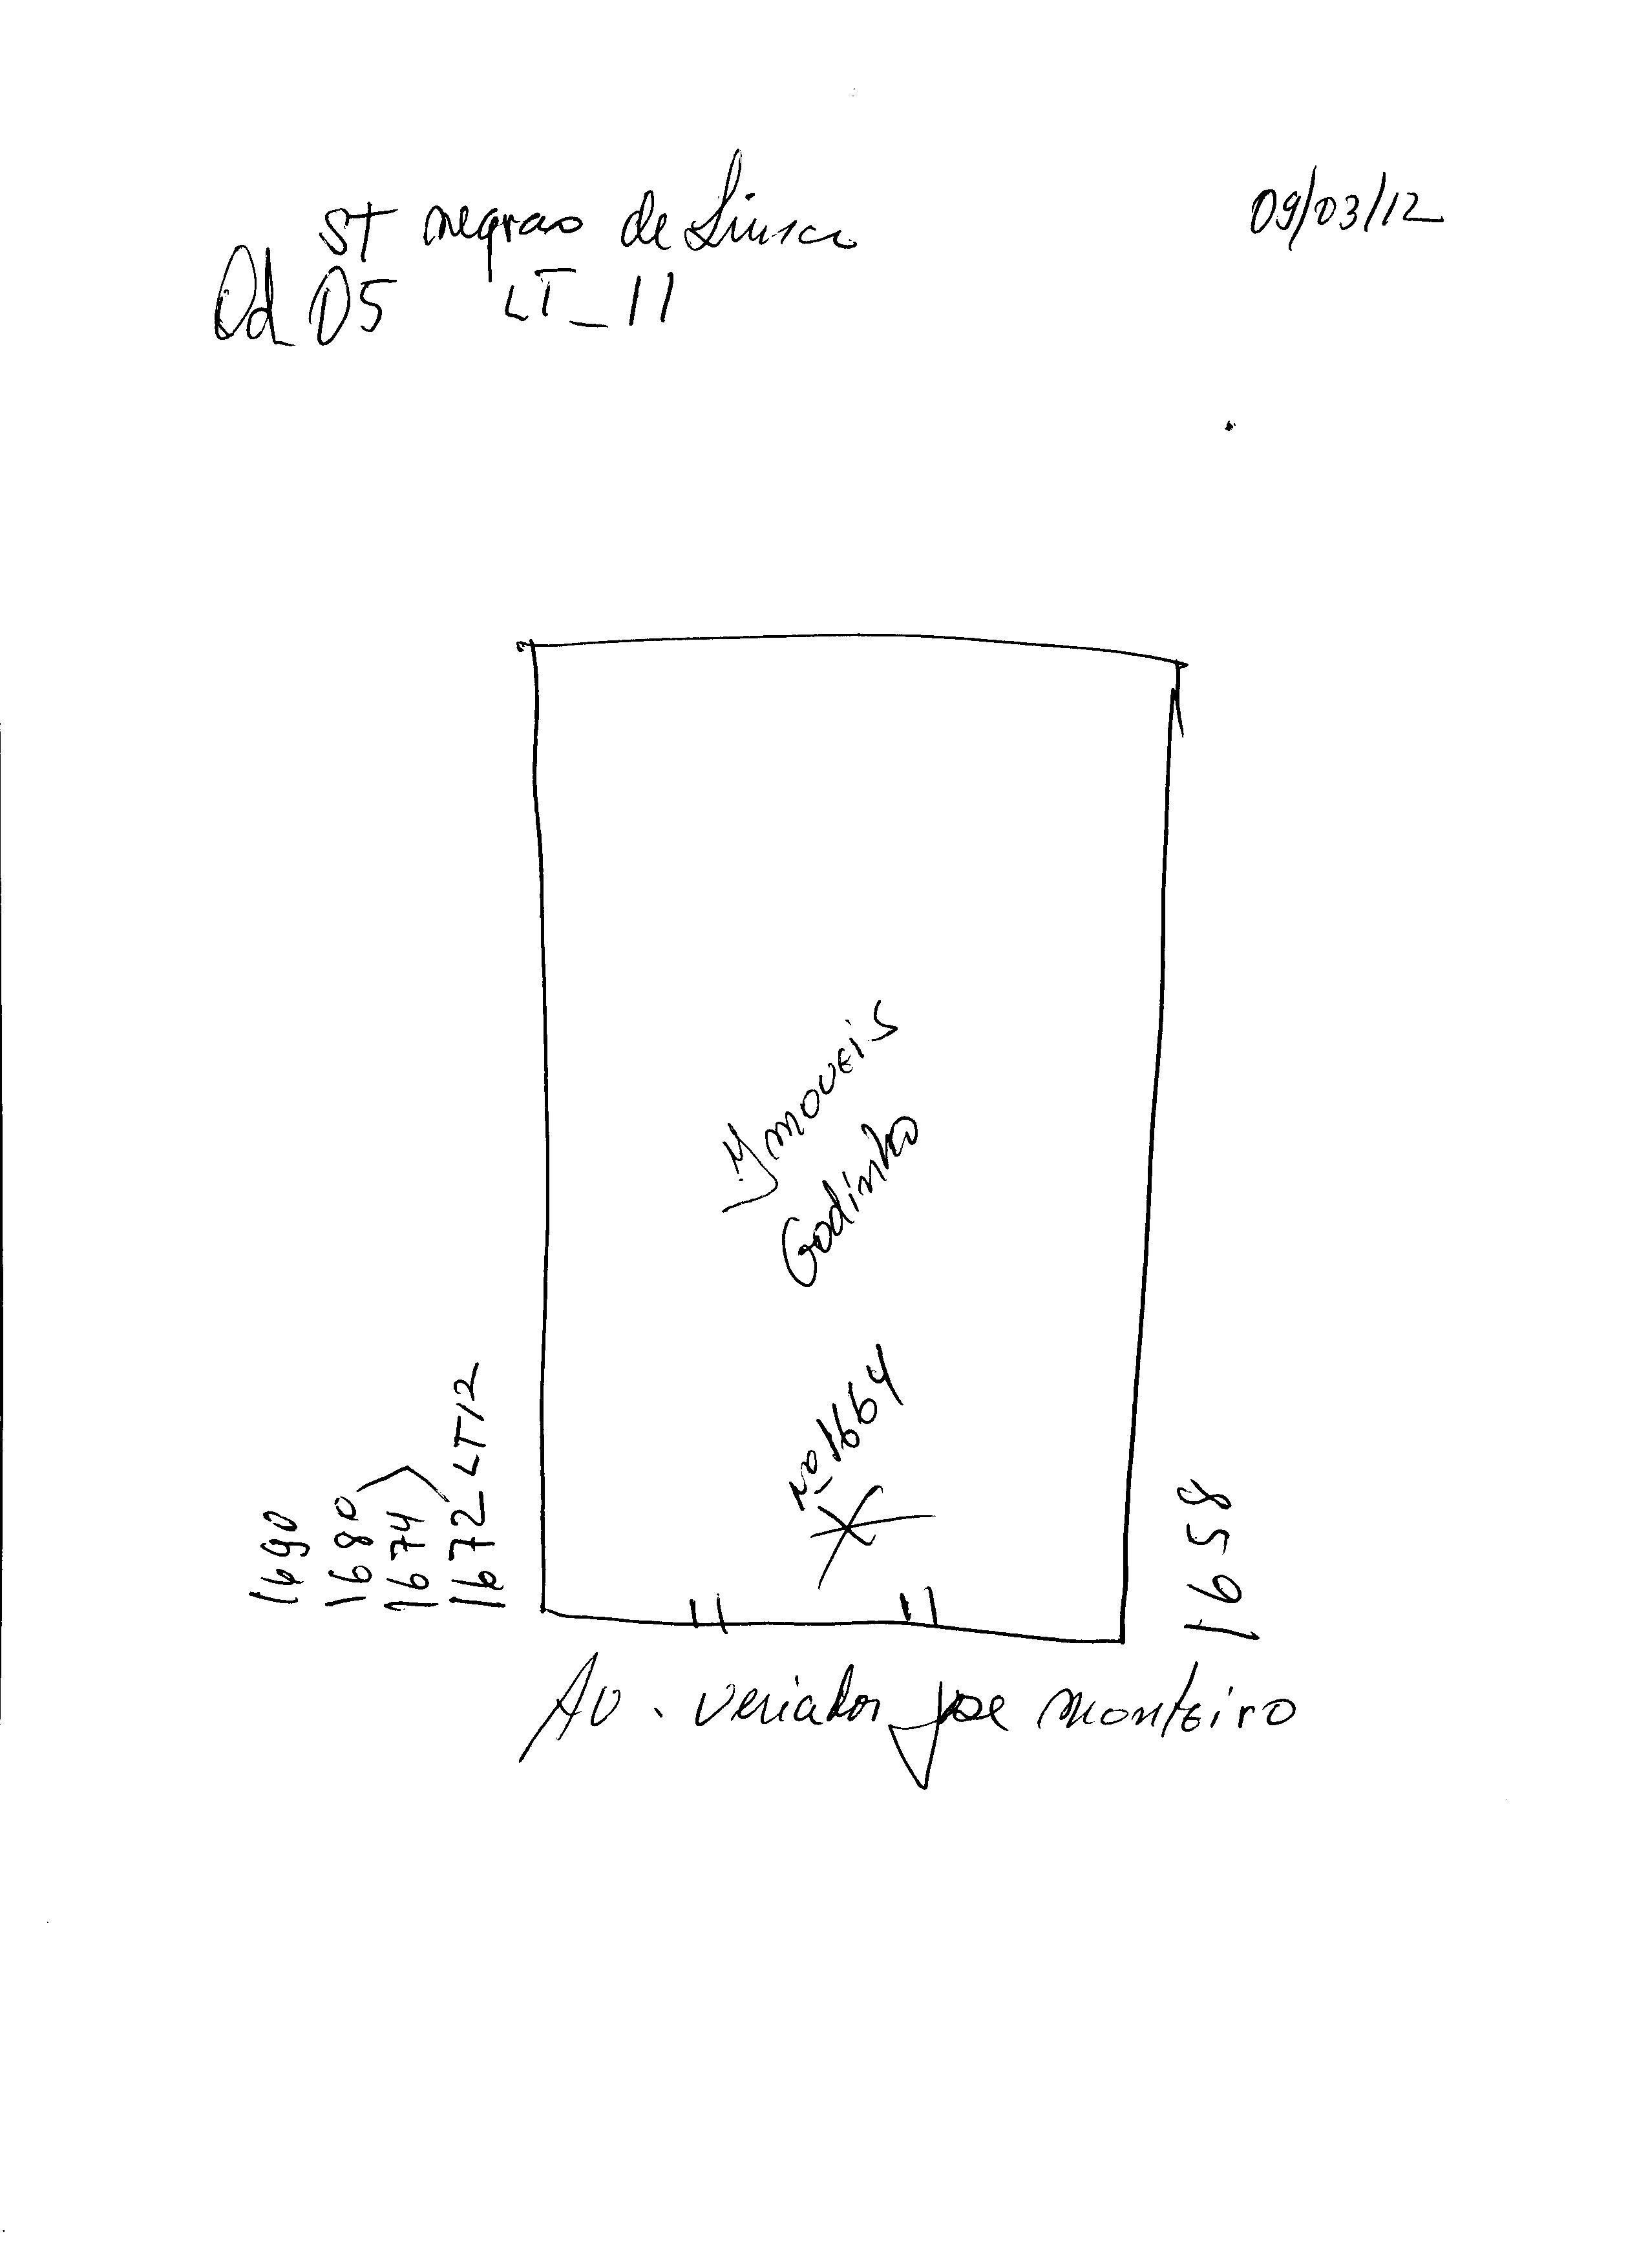 09/03/12
ST negrao de Lima
Qd 05 LT_11
Ymoveis
Godinho
no 1664
1690
1680
1674
1672 LT12
1658
AV. veriador jose monteiro